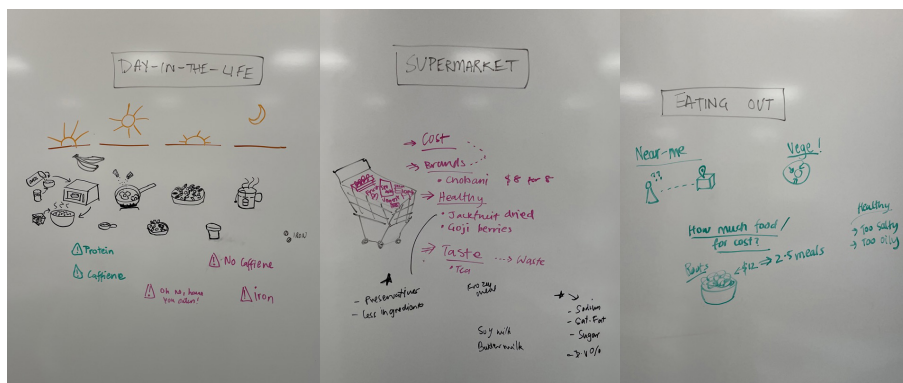 DAY-IN-THE-LIFE
Protein
Caffiene
No Caffiene
Oh no, have
you eaten?
Iron
IRON
SUPERMARKET
Cost
Brands
Chobani $8 for 8
Healthy
Jackfruit dried
Goji berries
Taste
Tea
Waste
- Preservatives
- Less ingredients
Frozen
meal
Soy milk
Butter milk
- Sodium
- Sat. Fat
- Sugar
EATING OUT
Near-me
??
Vege!
How much food/
for cost?
$12 → 2.5 meals
Healthy
→ Too Salty
→ Too oily